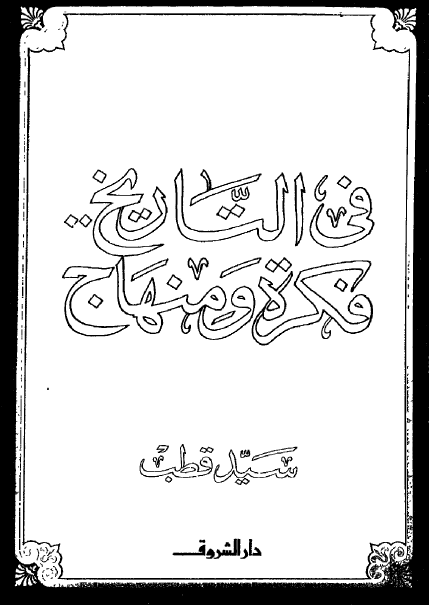 في التَّاريخ
فكرة وَمنهَاج
سَيّد قطبْ
دار الشروق